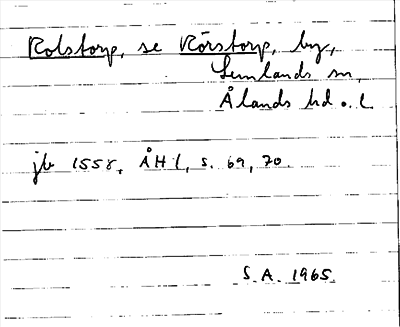 Rolstorp, se Rörstorp, by,
Lemlands sn,
Ålands hd o. l.
jb 1558, ÅH 1, s. 69, 70.
S.A. 1965